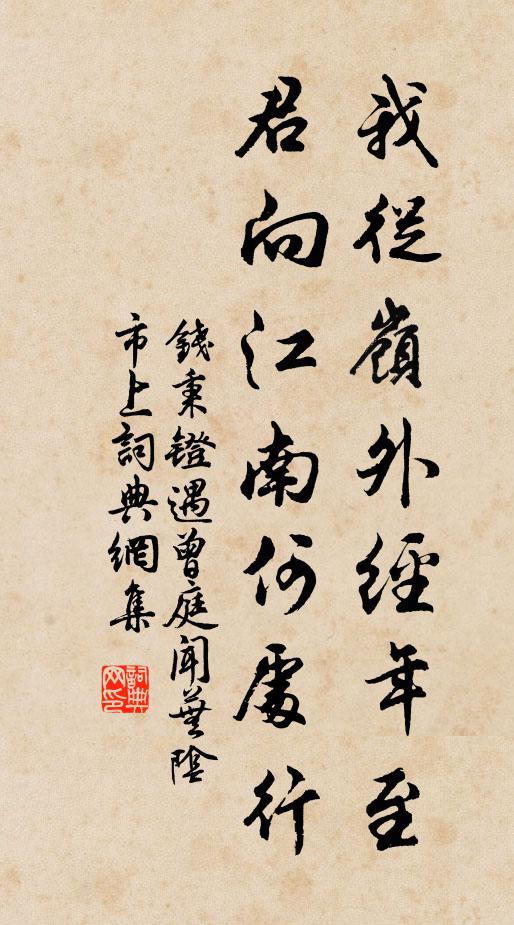 我從嶺外經年至
君向江南何處行
錢秉鐙遇曾庭聞蕪陰
市上詞典網集
詞典網印